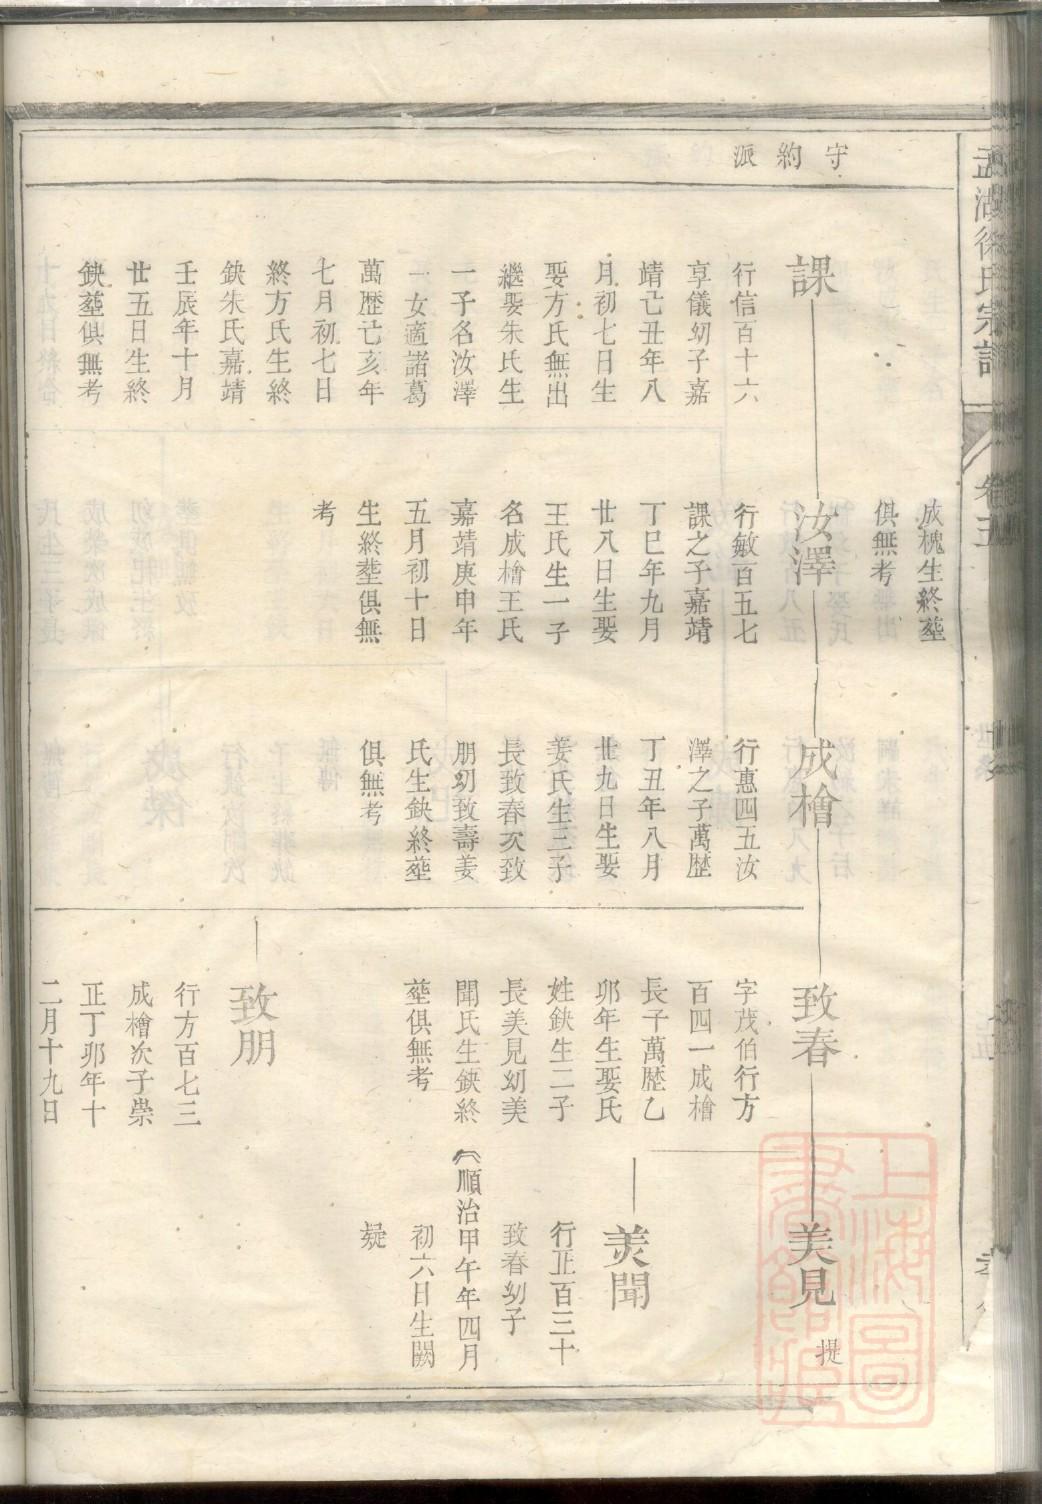 湖徐氏宗譜
卷五
守約派
課
行信百十六
享儀幼子嘉
靖己丑年八
月初七日生
娶方氏無出
繼娶朱氏生
一子名汝澤
一女適諸葛
萬歷己亥年
七月初七日
終方氏生終
缺朱氏嘉靖
壬辰年十月
廿五日生終
缺塟俱無考
成槐生終塟
俱無考
汝澤
行敏百五七
課之子嘉靖
丁巳年九月
廿八日生娶
王氏生一子
名成檜王氏
嘉靖庚申年
五月初十日
生終塟俱無
考
成檜
行惠四五汝
澤之子萬歷
丁丑年八月
廿九日生娶
姜氏生三子
長致春次致
朋幼致壽姜
氏生缺終塟
俱無考
致春
字茂伯行方
百四一成檜
長子萬歷乙
卯年生娶氏
姓缺生二子
長美見幼美
聞氏生缺終
塟俱無考
致朋
行方百七三
成檜次子崇
正丁卯年十
二月十九日
美見
提
美聞
行正百三十
致春幼子
順治甲午年四月
初六日生闕
疑
上海圖書館藏